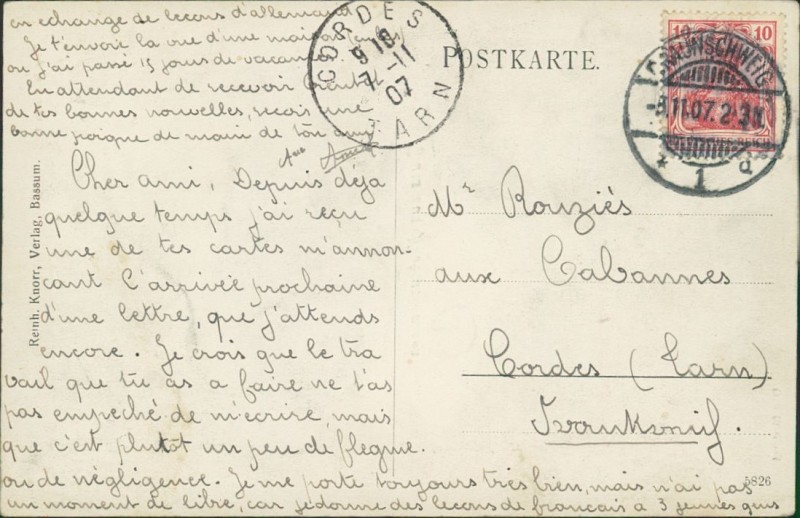 en échange de leçons d'allemand.
Je t'envoie la vue d'une maison
où j'ai passé 15 jours de vacances.
En attendant de recevoir
de tes bonnes nouvelles, reçois une
bonne poigne de main de ton ami
Cher ami, Depuis déja
quelque temps j'ai reçu
une de tes cartes m'annon-
çant l'arrivée prochaine
d'une lettre, que j'attends
encore. Je crois que le tra
vail que tu as a faire ne t'as
pas empeché de m'écrire, mais
que c'est plutot un peu de flegme.
ou de négligence. Je me porte toujours très bien, mais n'ai pas
un moment de libre, car je donne des leçons de français a 3 jeunes gens
Reinh. Knorr, Verlag, Bassum.
CORDES
9 18
7 -11
07
TARN
POSTKARTE.
10 10
DEUTSCHES REICH
BRAUNSCHWEIG
-5.11.07. 2-3N.
* 1 d
Mr Rouziés
aux Cabannes
Cordes (Tarn)
Frankreich.
5826